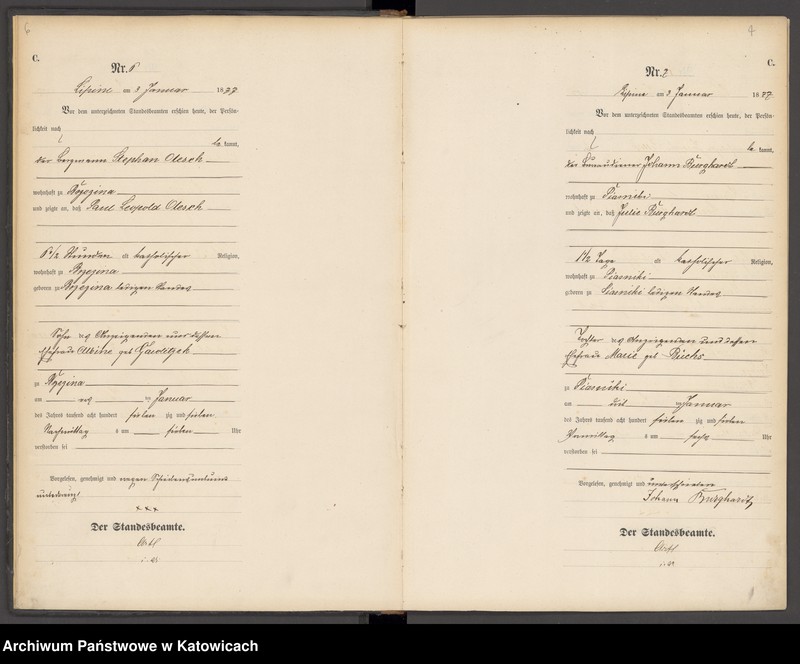 6
C.
Nr. 6
Lipine am 3 Januar 1877
Vor dem unterzeichneten Standesbeamten erschien heute, der Persön-
lichkeit nach
be kannt,
der Bergmann Stephan Olesch
wohnhaft zu
und zeigte an, daß Paul Leopold Olesch
6 1/2 Stunden alt katholischer Religion,
wohnhaft zu
geboren zu ledigen Standes
Sohn des Anzeigenden und dessen
Ehefrau Albine geb
zu
am des Januar
des Jahres tausend acht hundert sieben zig und sieben
Nachmittag s um sieben Uhr
verstorben sei
Vorgelesen, genehmigt und wegen Schreibensunkunde
unterkreuzt
xxx
Der Standesbeamte.
4
C.
Nr. 7
Lipine am 3 Januar 1877
Vor dem unterzeichneten Standesbeamten erschien heute, der Persön-
lichkeit nach
be kannt,
der Johann Burghardt
wohnhaft zu Piasniki
und zeigte an, daß Julie Burghardt
1 1/2 Tage alt katholischer Religion,
wohnhaft zu Piasniki
geboren zu Piasniki ledigen Standes
Tochter des Anzeigenden und dessen
Ehefrau Marie geb
zu Piasniki
am Januar
des Jahres tausend acht hundert sieben zig und sieben
Vormittag s um sechs Uhr
verstorben sei
Vorgelesen, genehmigt und unterschrieben
Johann Burghardt
Der Standesbeamte.
Archiwum Państwowe w Katowicach